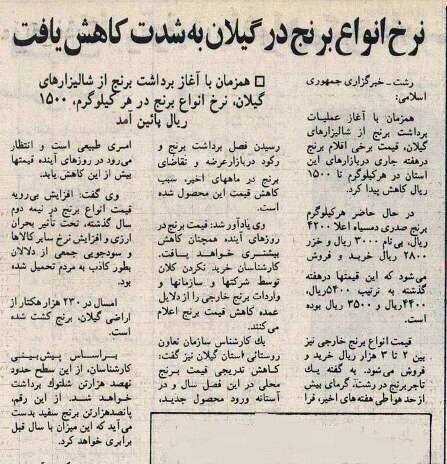 نرخ انواع برنج در گیلان به شدت کاهش یافت
□ همزمان با آغاز برداشت برنج از شالیزارهای
گیلان، نرخ انواع برنج در هر کیلوگرم، ۱۵۰۰
ریال پائین آمد
رشت ـ خبرگزاری جمهوری
اسلامی:
همزمان با آغاز عملیات
برداشت برنج از شالیزارهای
گیلان، قیمت برخی اقلام برنج
در هفته جاری در بازارهای این
استان در هر کیلوگرم تا ۱۵۰۰
ریال کاهش پیدا کرد.
در حال حاضر هر کیلوگرم
برنج صدری دمسیاه اعلا ۴۲۰۰
ریال، بی‌نام ۳۰۰۰ ریال و خزر
۲۸۰۰ ریال خرید و فروش
می‌شود که این قیمتها در هفته
گذشته به ترتیب ۵۴۰۰ریال،
۴۴۰۰ریال و ۳۵۰۰ ریال بوده
است.
قیمت انواع برنج خارجی نیز
بین ۲ تا ۳ هزار ریال خرید و
فروش می‌شود. به گفته یک
تاجر برنج در رشت، گرمای بیش
از حد هوا طی هفته‌های اخیر، فرا
رسیدن فصل برداشت برنج و
رکود در بازار عرضه و تقاضای
برنج در ماههای اخیر، سبب
کاهش قیمت این محصول شده
است.
وی یادآور شد: قیمت برنج در
روزهای آینده همچنان کاهش
بیشتری خواهد یافت.
کارشناسان خرید نکردن کلان
توسط شرکتها و سازمانها و
واردات برنج خارجی را از دلایل
عمده کاهش قیمت برنج اعلام
می‌کنند.
یک کارشناس سازمان تعاون
روستائی استان گیلان نیز گفت:
کاهش تدریجی قیمت برنج
محلی در این فصل سال و در
آستانه ورود محصول جدید،
امری طبیعی است و انتظار
می‌رود در روزهای آینده قیمتها
بیش از این کاهش یابد.
وی گفت: افزایش بی‌رویه
قیمت انواع برنج در نیمه دوم
سال گذشته، تحت تأثیر بحران
ارزی و افزایش نرخ سایر کالاها
و سودجویی جمعی از دلالان
بطور کاذب به مردم تحمیل شده
بود.
امسال در ۲۳۰ هزار هکتار از
اراضی گیلان، برنج کشت شده
است.
براساس پیش‌بینی
کارشناسان، از این سطح حدود
نهصد هزارتن شلتوک برداشت
خواهد شد. از این رقم،
پانصدهزارتن برنج سفید بدست
می‌آید که این میزان با سال قبل
برابری خواهد کرد.